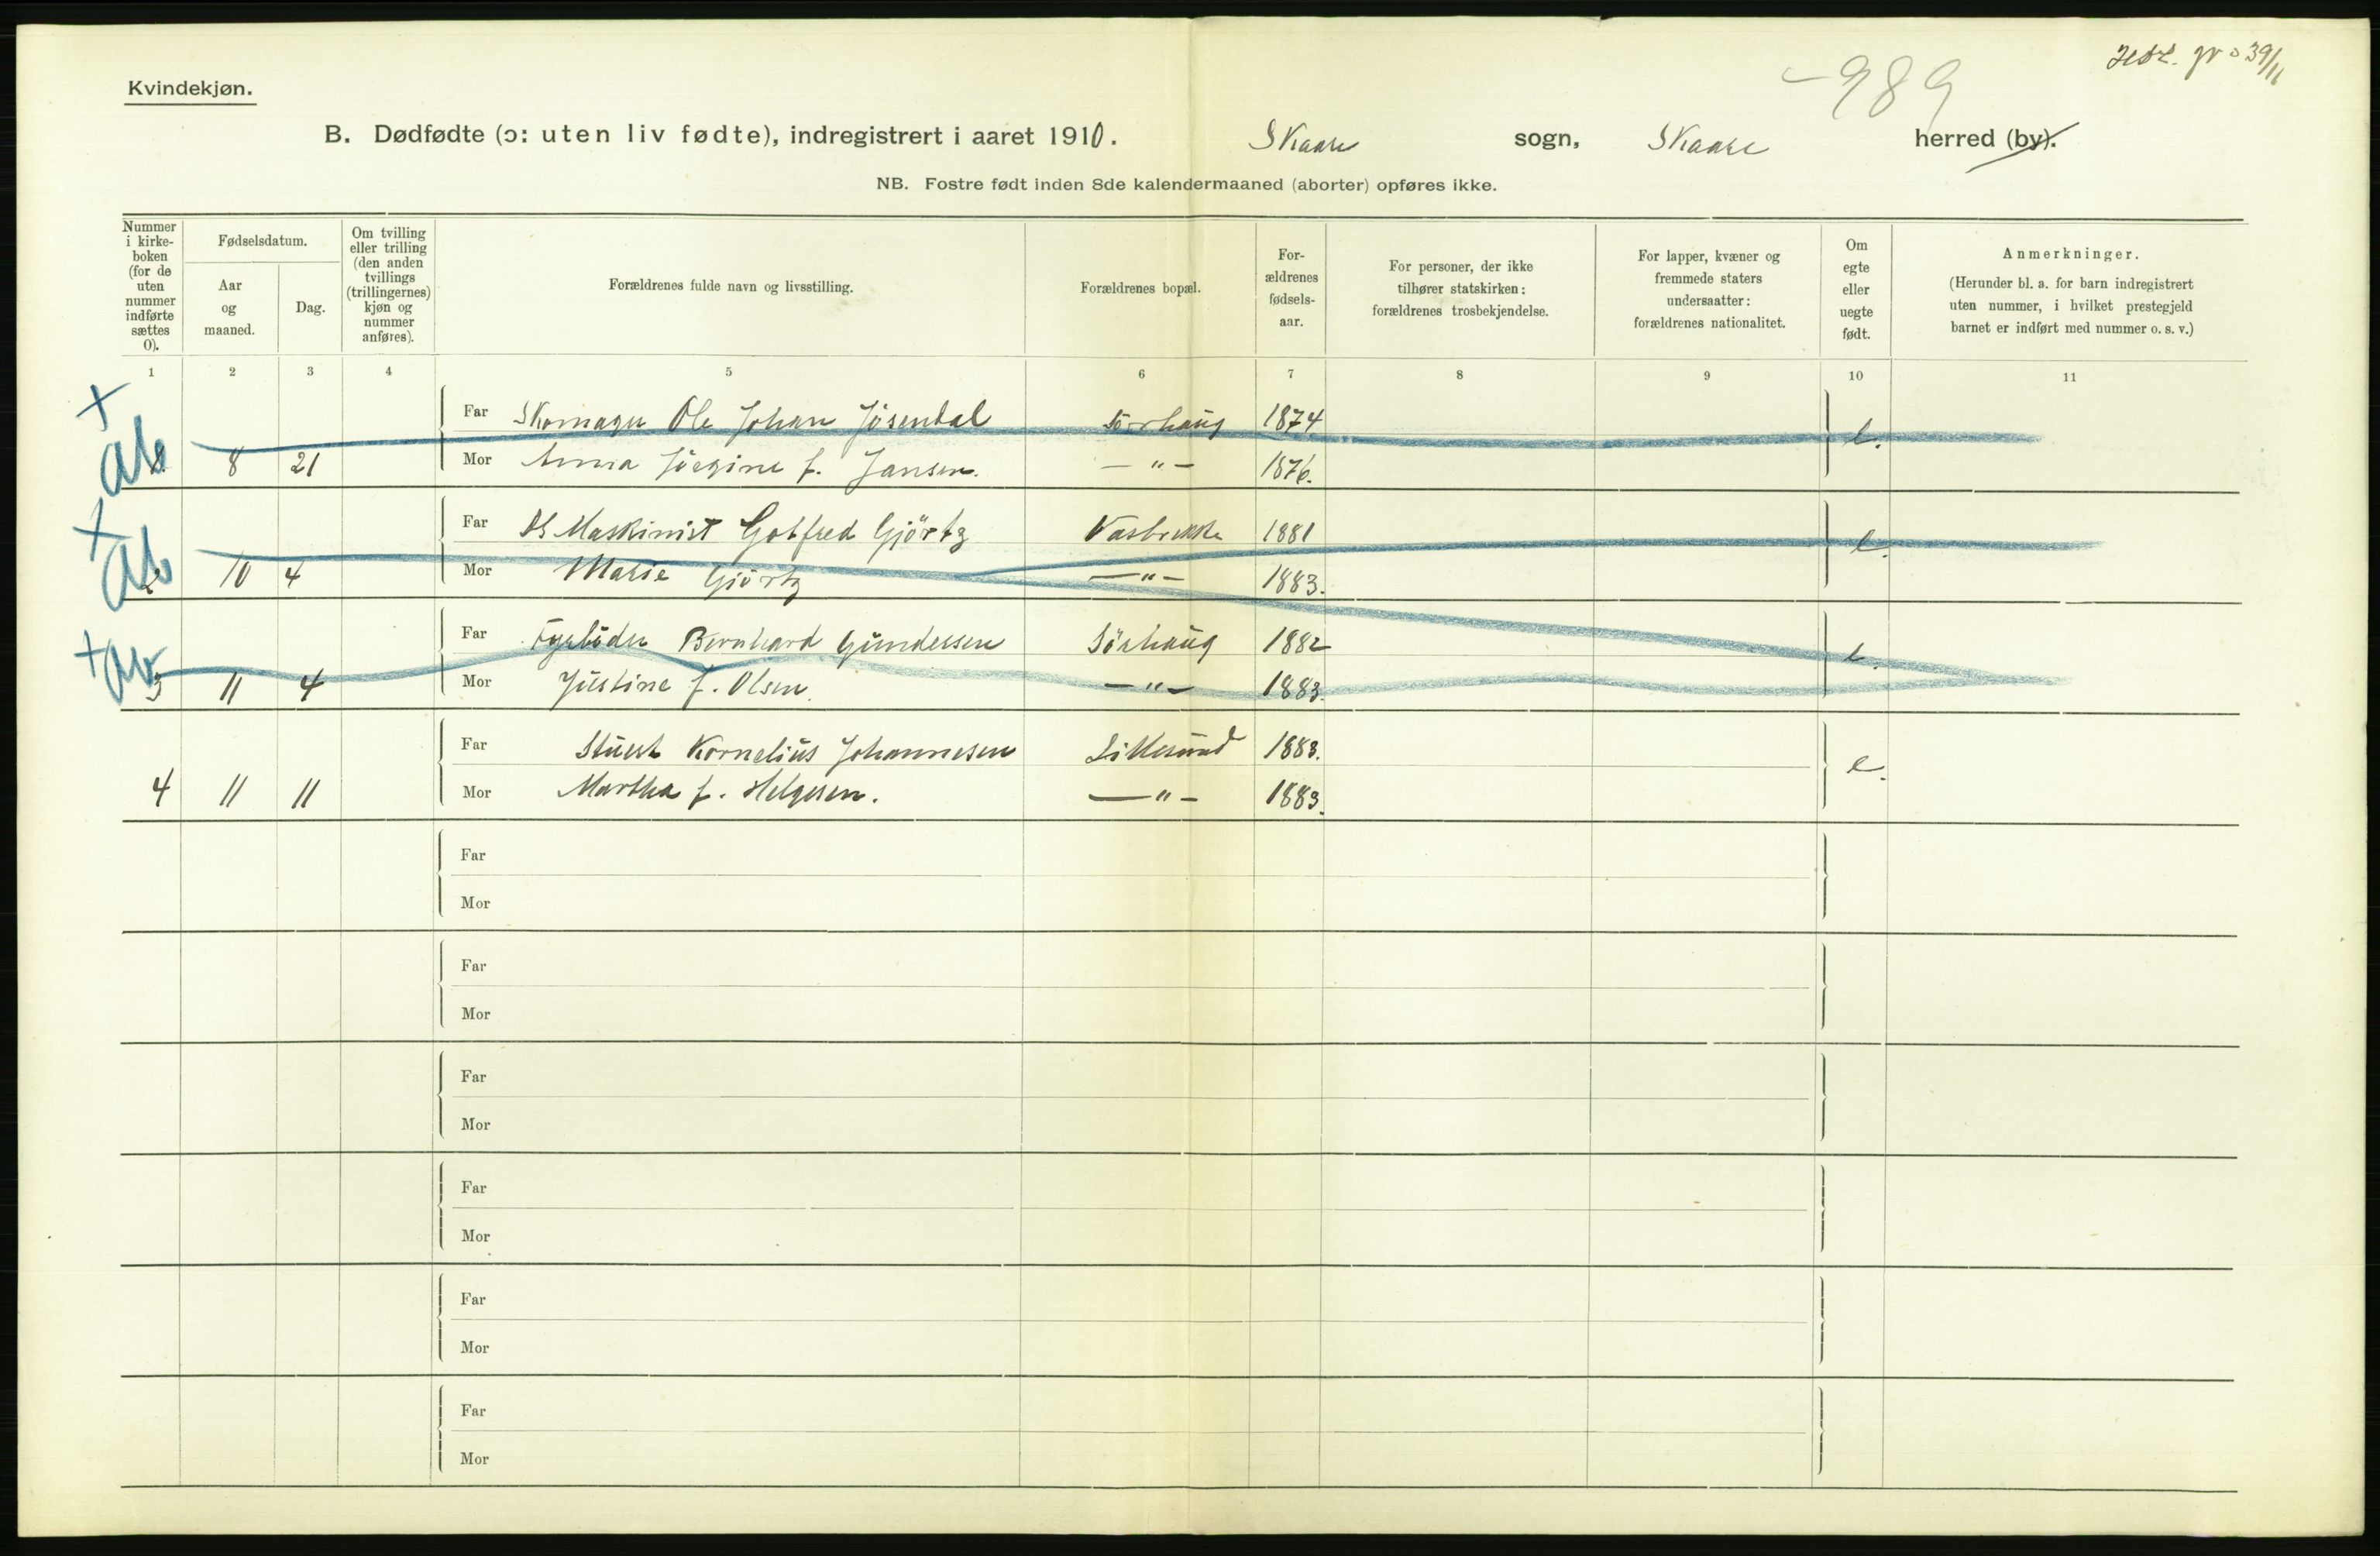 Kvindekjøn.
-989
gr 39/11
B. Dødfødte (ɔ: uten liv fødte), indregistrert i aaret 1910. Skaare sogn, Skaare herred (by).
NB. Fostre født inden 8de kalendermaaned (aborter) opføres ikke.
Nummer i kirke-boken (for de uten nummer indførte sættes 0).
Fødselsdatum.
Aar og maaned.
Dag.
Om tvilling eller trilling (den anden tvillings (trillingernes) kjøn og nummer anføres).
Forældrenes fulde navn og livsstilling.
Forældrenes bopæl.
For-ældrenes fødsels-aar.
For personer, der ikke tilhører statskirken: forældrenes trosbekjendelse.
For lapper, kvæner og fremmede staters undersaatter: forældrenes nationalitet.
Om egte eller uegte født.
Anmerkninger.
(Herunder bl. a. for barn indregistrert uten nummer, i hvilket prestegjeld barnet er indført med nummer o. s. v.)
1 2 3 4 5 6 7 8 9 10 11
+
ab
Far Skomager Ole Johan Jösendal Sörhaug 1874 e.
8 21 Mor Anna f. Jansen. — " — 1876.
+
ab
Far Maskinist Gotfred Gjörtz Vasbrekke 1881 e
2 10 4 Mor Marie Gjörtz — " — 1883.
+
ab
Far Fyrböder Bernhard Gundersen Sörhaug 1882 e.
3 11 4 Mor Justine f. Olsen. — " — 1883.
Far Stuert Kornelius Johannesen Lillesund 1883. e.
4 11 11 Mor Martha f. Helgesen. — " — 1883.
Far
Mor
Far
Mor
Far
Mor
Far
Mor
Far
Mor
Far
Mor